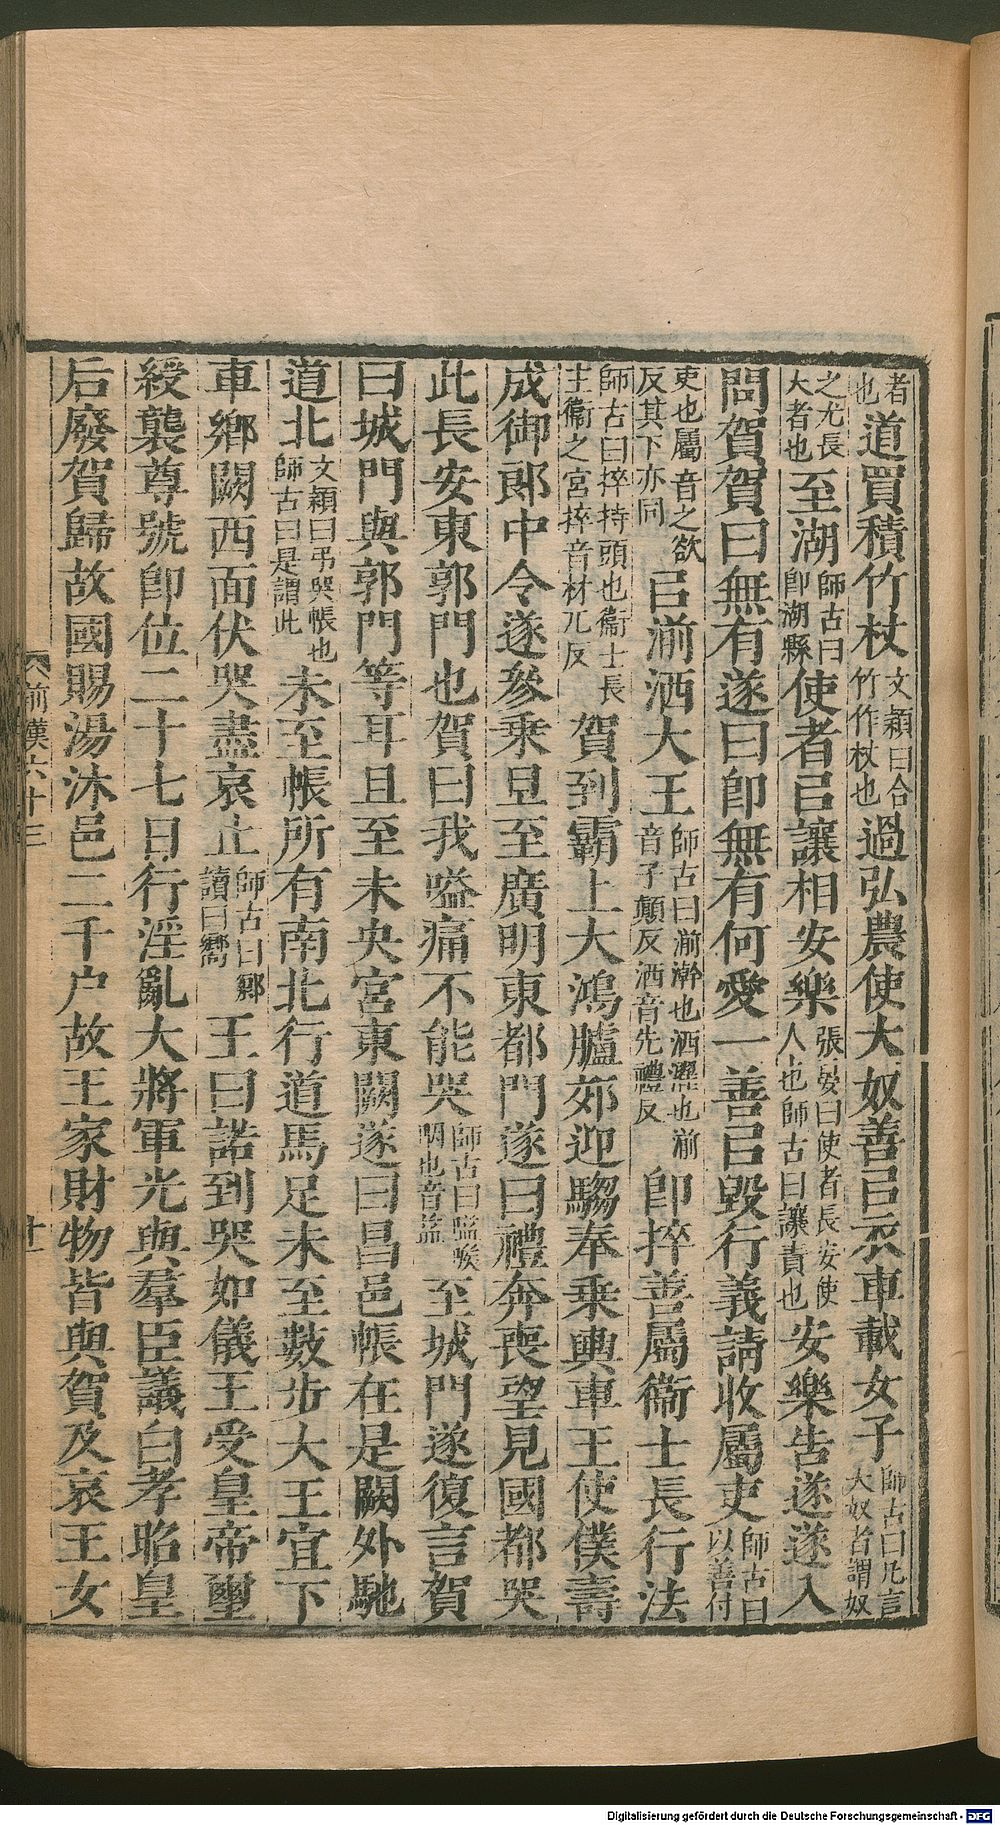 者也道買積竹杖文穎曰合竹作杖也過弘農使大奴善㠯衣車載女子師古曰凡言大奴者謂奴
之尤長大者也至湖師古曰即湖縣使者㠯讓相安樂張晏曰使者長安使人也師古曰讓責也安樂告遂遂入
問賀賀曰無有遂曰即無有何愛一善㠯毀行義請收屬吏師古曰以善付
吏也屬音之欲反其下亦同㠯湔洒大王師古曰湔澣也洒濯也湔音子顛反洒音先禮反即捽善屬衞士長行法
師古曰捽持頭也衞士長主衞之官捽音材兀反賀到霸上大鴻臚郊迎騶奉乗輿車王使僕壽
成御郎中令遂參乗旦至廣明東都門遂曰禮奔喪望見國都哭
此長安東郭門也賀曰我嗌痛不能哭師古曰嗌喉咽也音益至城門遂復言賀
曰城門與郭門等耳且至未央宮東闕遂曰昌邑帳在是闕外馳
道北文穎曰弔哭帳也師古曰是謂此未至帳所有南北行道馬足未至數步大王宜下
車鄉闕西面伏哭盡哀止師古曰鄉讀曰嚮王曰諾到哭如儀王受皇帝璽
綬襲尊號即位二十七日行淫亂大將軍光與羣臣議白孝昭皇
后廢賀歸故國賜湯沐邑二千户故王家財物皆與賀及哀王女
前漢六十三
十一
Digitalisierung gefördert durch die Deutsche Forschungsgemeinschaft - DFG